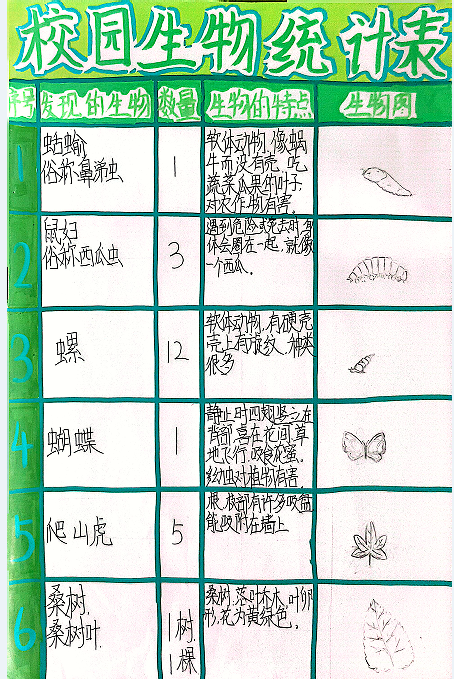 校园生物统计表
序号 发现的生物 数量 生物的特点 生物图
1
蛞蝓
俗称鼻涕虫
1
软体动物,像蜗
牛而没有壳,吃
蔬菜瓜果的叶子,
对农作物有害。
2
鼠妇
俗称西瓜虫
3
遇到危险或死去时,身
体会圈在一起,就像
一个西瓜。
3
螺
12
软体动物,有硬壳,
壳上有旋纹,种类
很多
4
蝴蝶
1
静止时四翅竖立在
背部,喜在花间,草
地飞行,吸食花蜜。
幼虫对植物有害
5
爬山虎
5
根,枝部有许多吸盘
能吸附在墙上
6
桑树,
桑树叶
1树,
1棵
桑树,落叶乔木,叶卵
形,花为黄绿色。